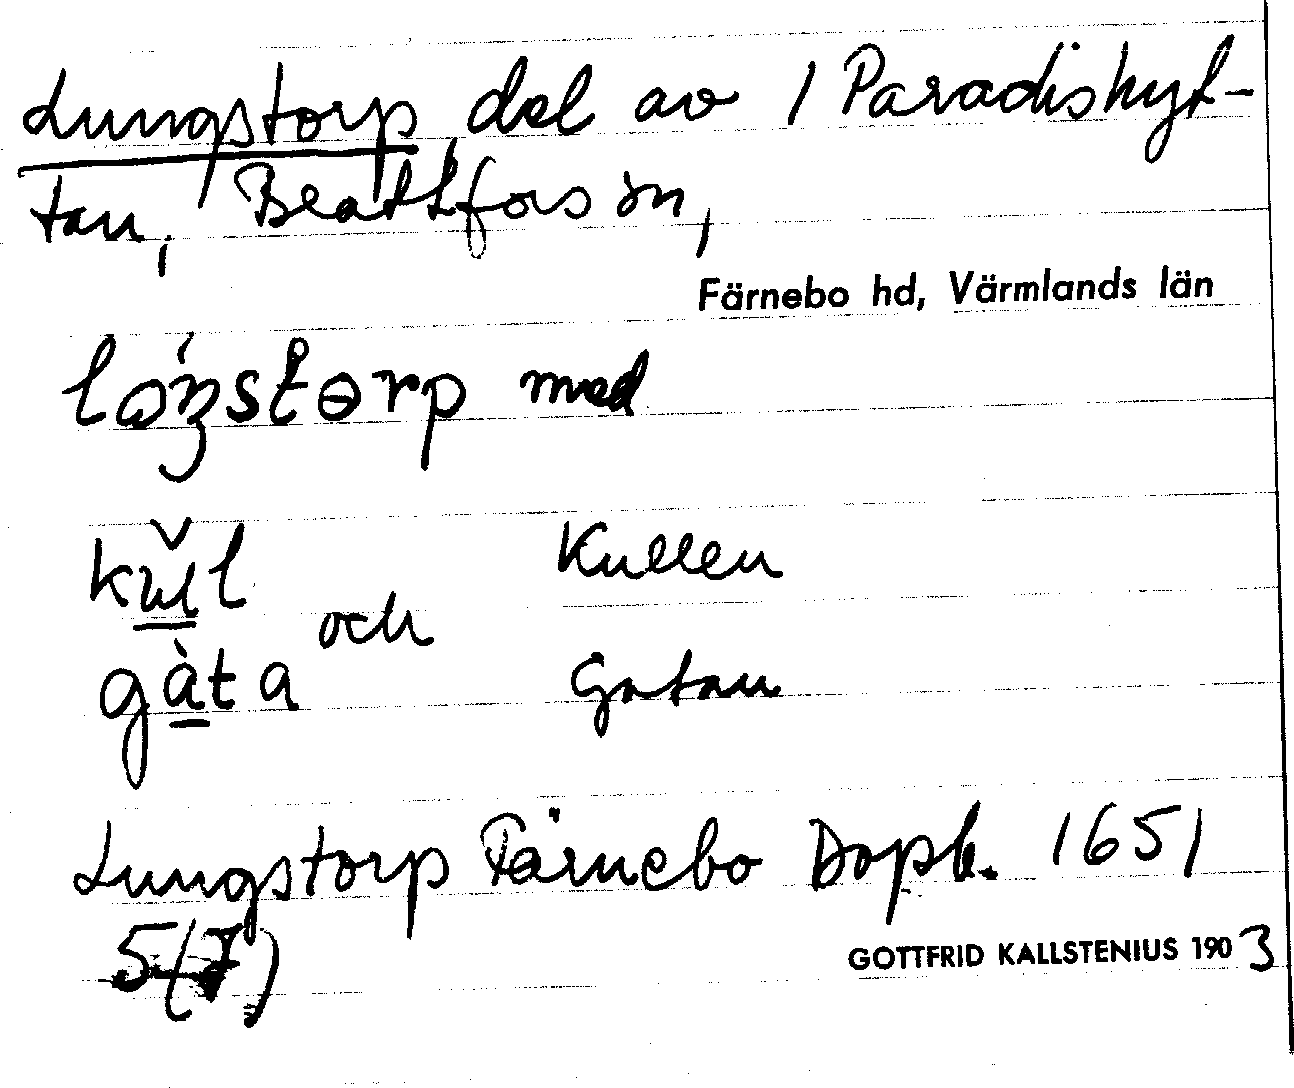 Lungstorp del av 1 Paradishyt-
tan, Beattfors sn,
Färnebo hd, Värmlands län
med
Kullen
och
gàta Gatan
Lungstorp Färnebo Dopb. 1651
5 (7)
GOTTFRID KALLSTENIUS 1903